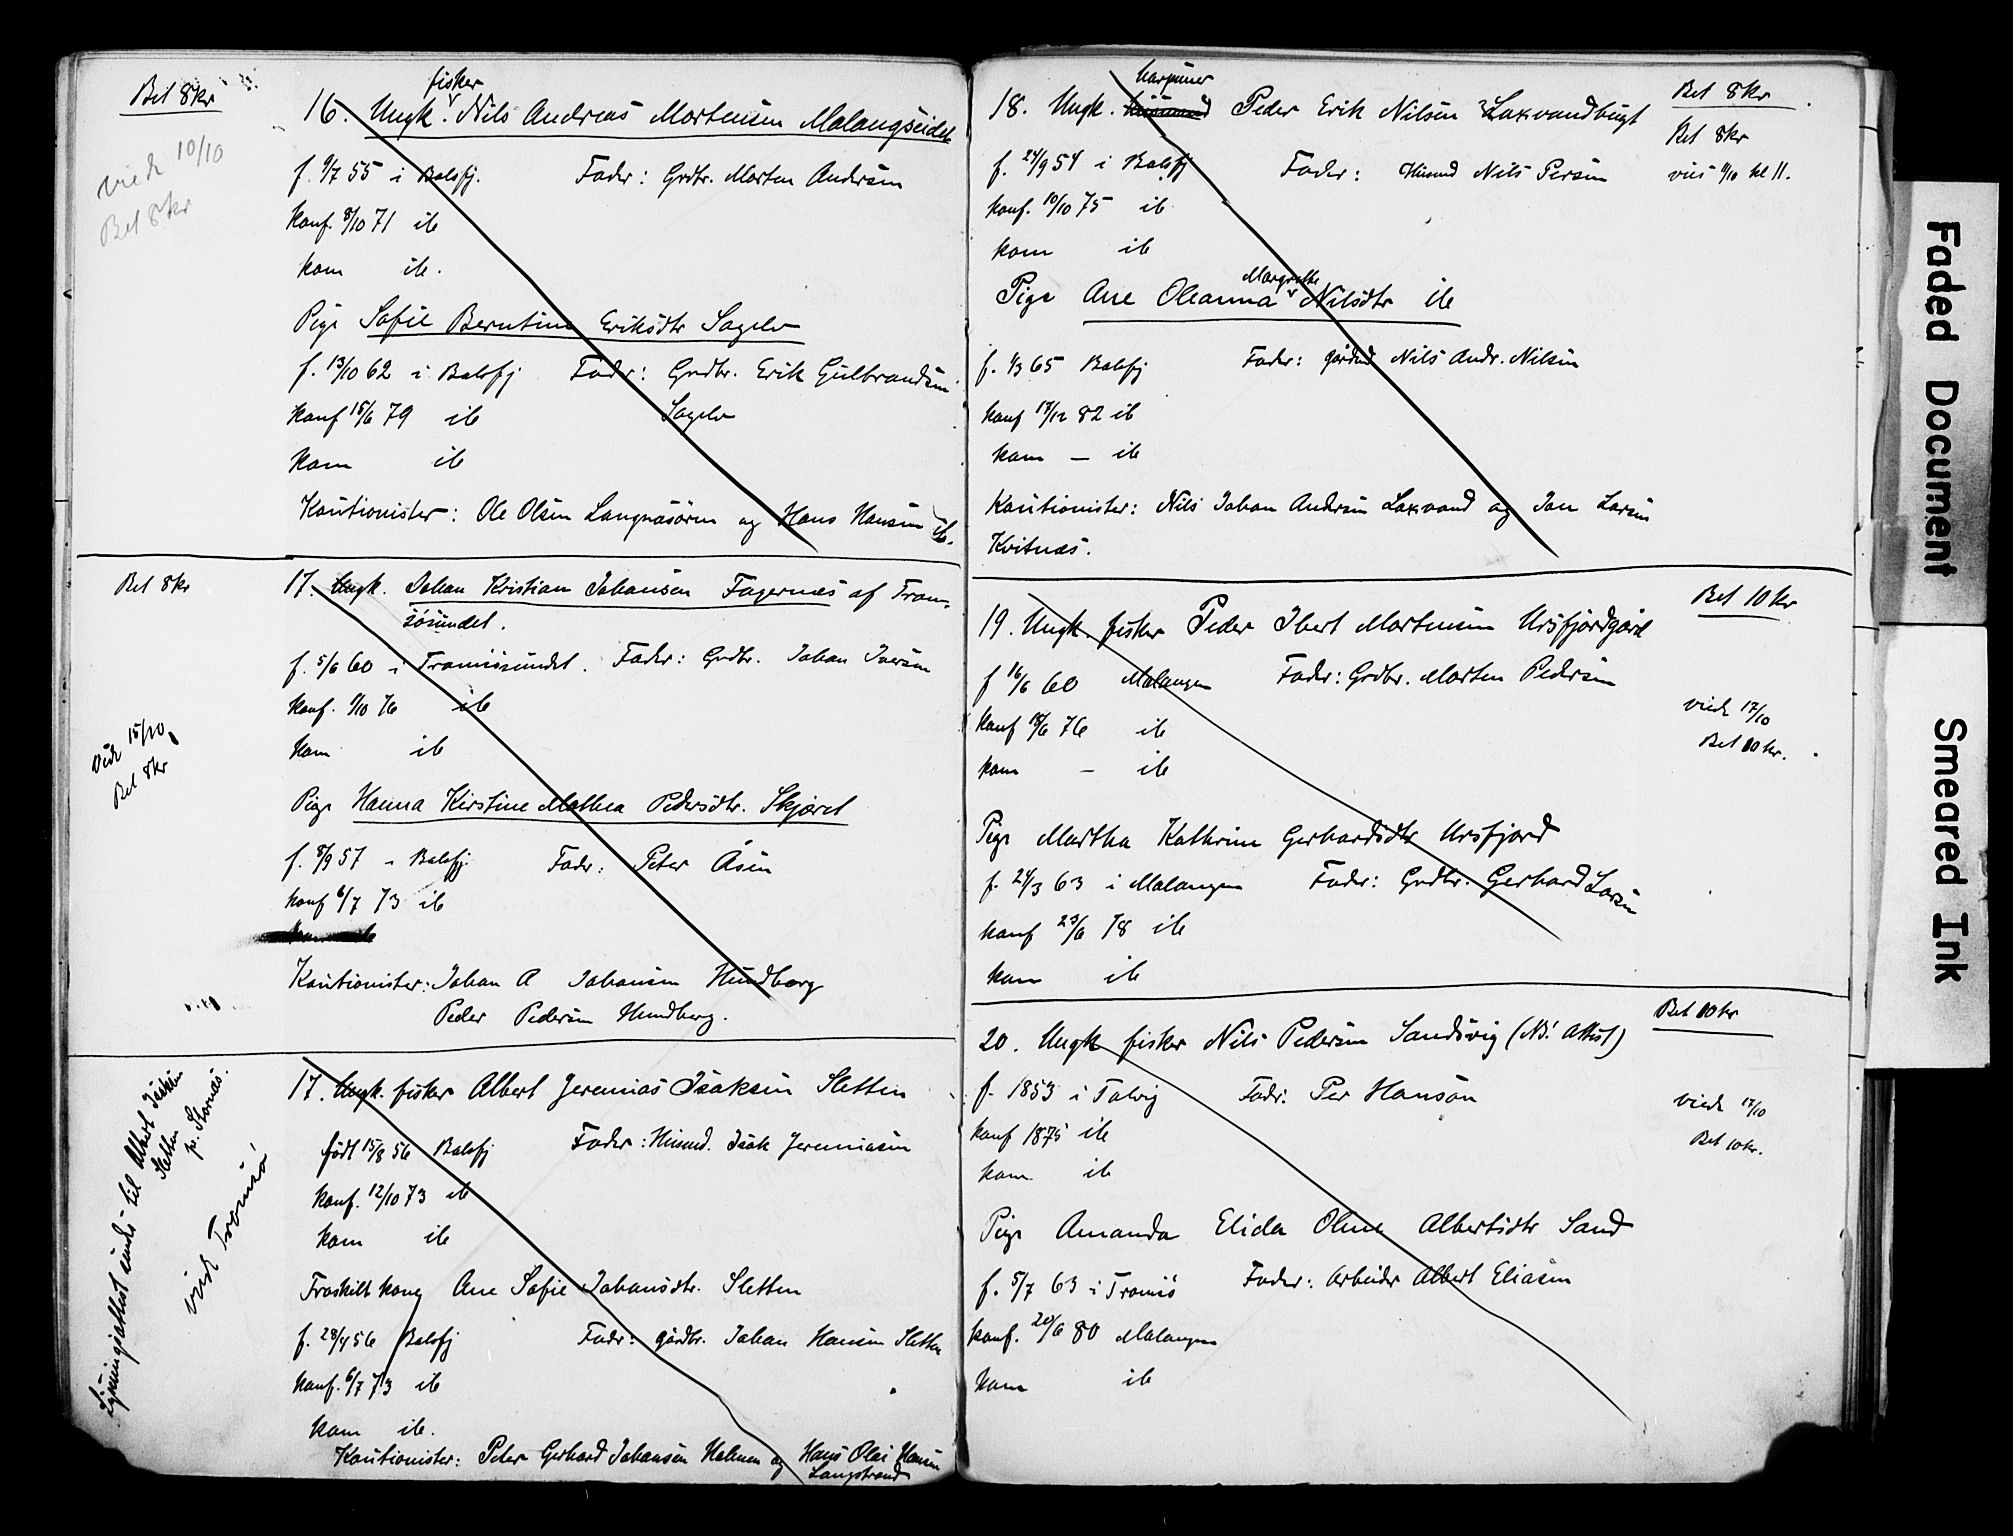 Bet 8 kr
viede 10/10
Bet 8 kr
fisker
16. Ungk. Nils Andreas Mortensen Malangseidet
f. 9/7 55 i Balsfj. Fader: Grdbr. Morten Andersen
Konf. 8/10 71 ib
kom ib.
Pige Sofie Berntine Eriksdtr Sagelv
f. 13/10 62 i Balsfj Fader: Grdbr. Erik Gulbrandsen
Sagelv
Konf 15/6 79 ib
Kom ib
Kautionister: Ole Olsen Langnæsøren og Hans Hansen ib.
Bet 8 kr
17. Ungk. Johan Kristian Johansen Fagernæs af Trom-
søsundet.
f. 5/6 60 i Tromsøsundet. Fader: Grdbr. Johan Iversen
Konf. 1/10 76 ib
Kom ib
Vide 15/10
Bet 8 kr
Pige Hanna Kirstine Mathea Pedersdtr. Skjæret
f. 8/9 57 - Balsfj Fader: Peter Åsen
Konf 6/7 73 ib
Kautionister: Johan A Johansen Hundberg
Peder Pedersen Hundberg.
17. Ungk. fisker Albert Jeremias Isaksen Sletten
født 15/8 56 Balsfj Fader: Husmd. Isak Jeremiasen
Konf. 12/10 73 ib
Kom ib
Fraskilt kone Ane Sofie Johansdtr. Sletten
f. 28/4 56 Balsfj Fader: gårdbr. Johan Hansen Sletten
Konf. 6/7 73 ib
Kom ib.
Kautionister: Peter Gerhard Johansen Holmen og Hans Olai Hansen
Langstrand
Lysningsattest sendt til Albert Isaksen
Sletten
p. Stornæs.
viet Tromsø
harpuner
18. Ungk. husmand Peder Erik Nilsen Laxvandbugt
Bet 8 kr
Bet 8 kr
vies 9/10 kl 11.
f. 24/9 54 i Balsfj Fader: Husmd Nils Persen
Konf. 10/10 75 ib
kom ib
Margrethe
Pige Ane Oleanna Nilsdtr ib
f. 1/3 65 Balsfj Fader: gårdmd Nils Andr. Nilsen
Konf 17/12 82 ib
kom — ib
Kautionister: Nils Johan Andersen Laxvand og Jon Larsen
Kvitnæs.
Bet 10 kr
19. Ungk. fisker Peder Ibert Mortensen Ursfjordgård
f 16/6 60 Malangen Fader: Grdbr. Morten Pedersen
viede 17/10
Bet 10 kr.
Konf 18/6 76 ib
kom - ib
Pige Martha Kathrine Gerhardsdtr Ursfjord
f. 24/3 63 i Malangen Fader: Grdbr. Gerhard Larsen
Konf 23/6 78 ib
kom ib
Bet 10 kr
20. Ungk fisker Nils Pedersen Sandsvig (NB! Attest)
f. 1853 i Talvig Fader: Per Hanson
viede 17/10
Bet 10 kr.
Konf 1875 ib
kom ib
Pige Amanda Elida Oline Albertsdtr Sand
f. 5/7 63 i Tromsø Fader: Arbeider Albert Eliasen
Konf. 20/6 80 Malangen
Kom ib
Faded Document
Smeared Ink